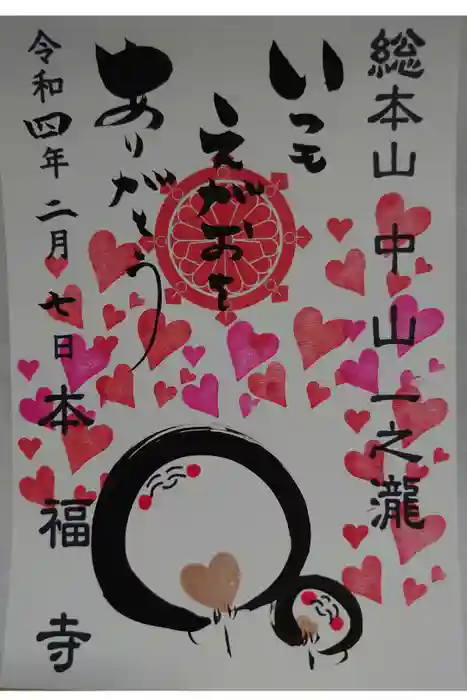 総本山 中山一之瀧
いつも
えがおを
ありがとう
令和四年二月七日
本福寺